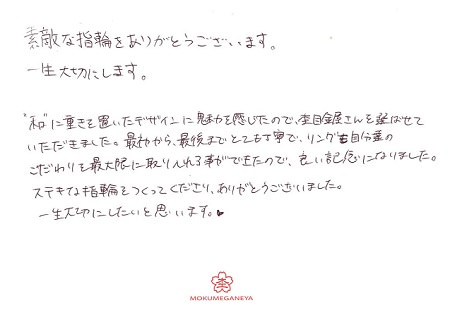 素敵な指輪をありがとうございます。
一生大切にします。
"和"に重きを置いたデザインに魅力を感じたので、杢目金屋さんを選ばせて
いただきました。最初から、最後までとても丁寧で、リングも自分達の
こだわりを最大限に取り入れる事ができたので、良い記念になりました。
ステキな指輪をつくってくださり、ありがとうございました。
一生大切にしたいと思います。♥
杢
MOKUMEGANEYA